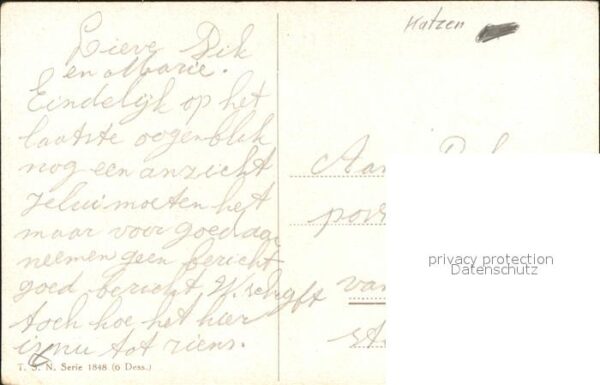 Katzen
Lieve Dik
en Marie.
Eindelijk op het
laatste oogenblik
nog een anzicht
Jelui moeten het
maar voor goed aan
neemen geen bericht
goed bericht. U. schrijft
toch hoe het hier
is nu tot ziens.
Aan
van
privacy protection
Datenschutz
T. S. N. Serie 1848 (6 Dess.)